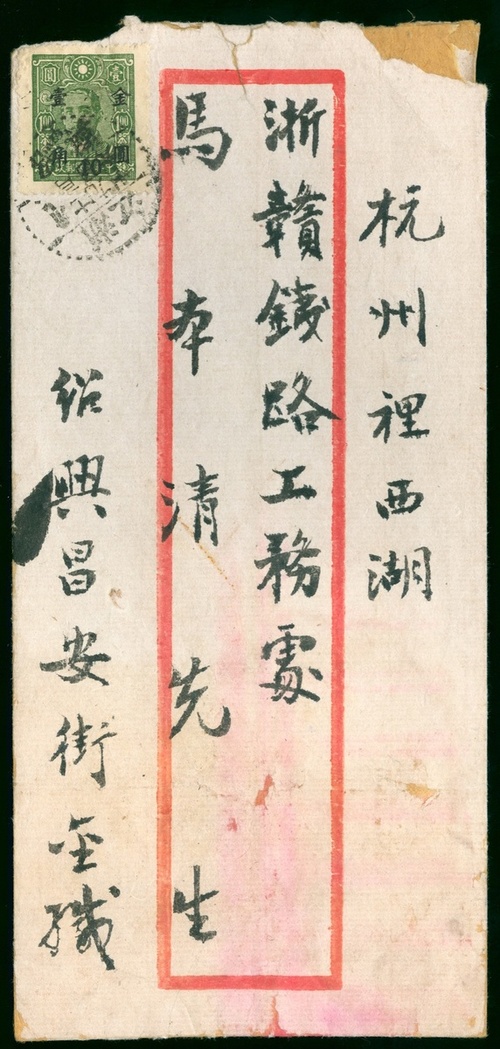 杭州裡西湖
浙贛鐵路工務處
馬本清先生
紹興昌安街金緘
壹圓
金圓
壹角
10